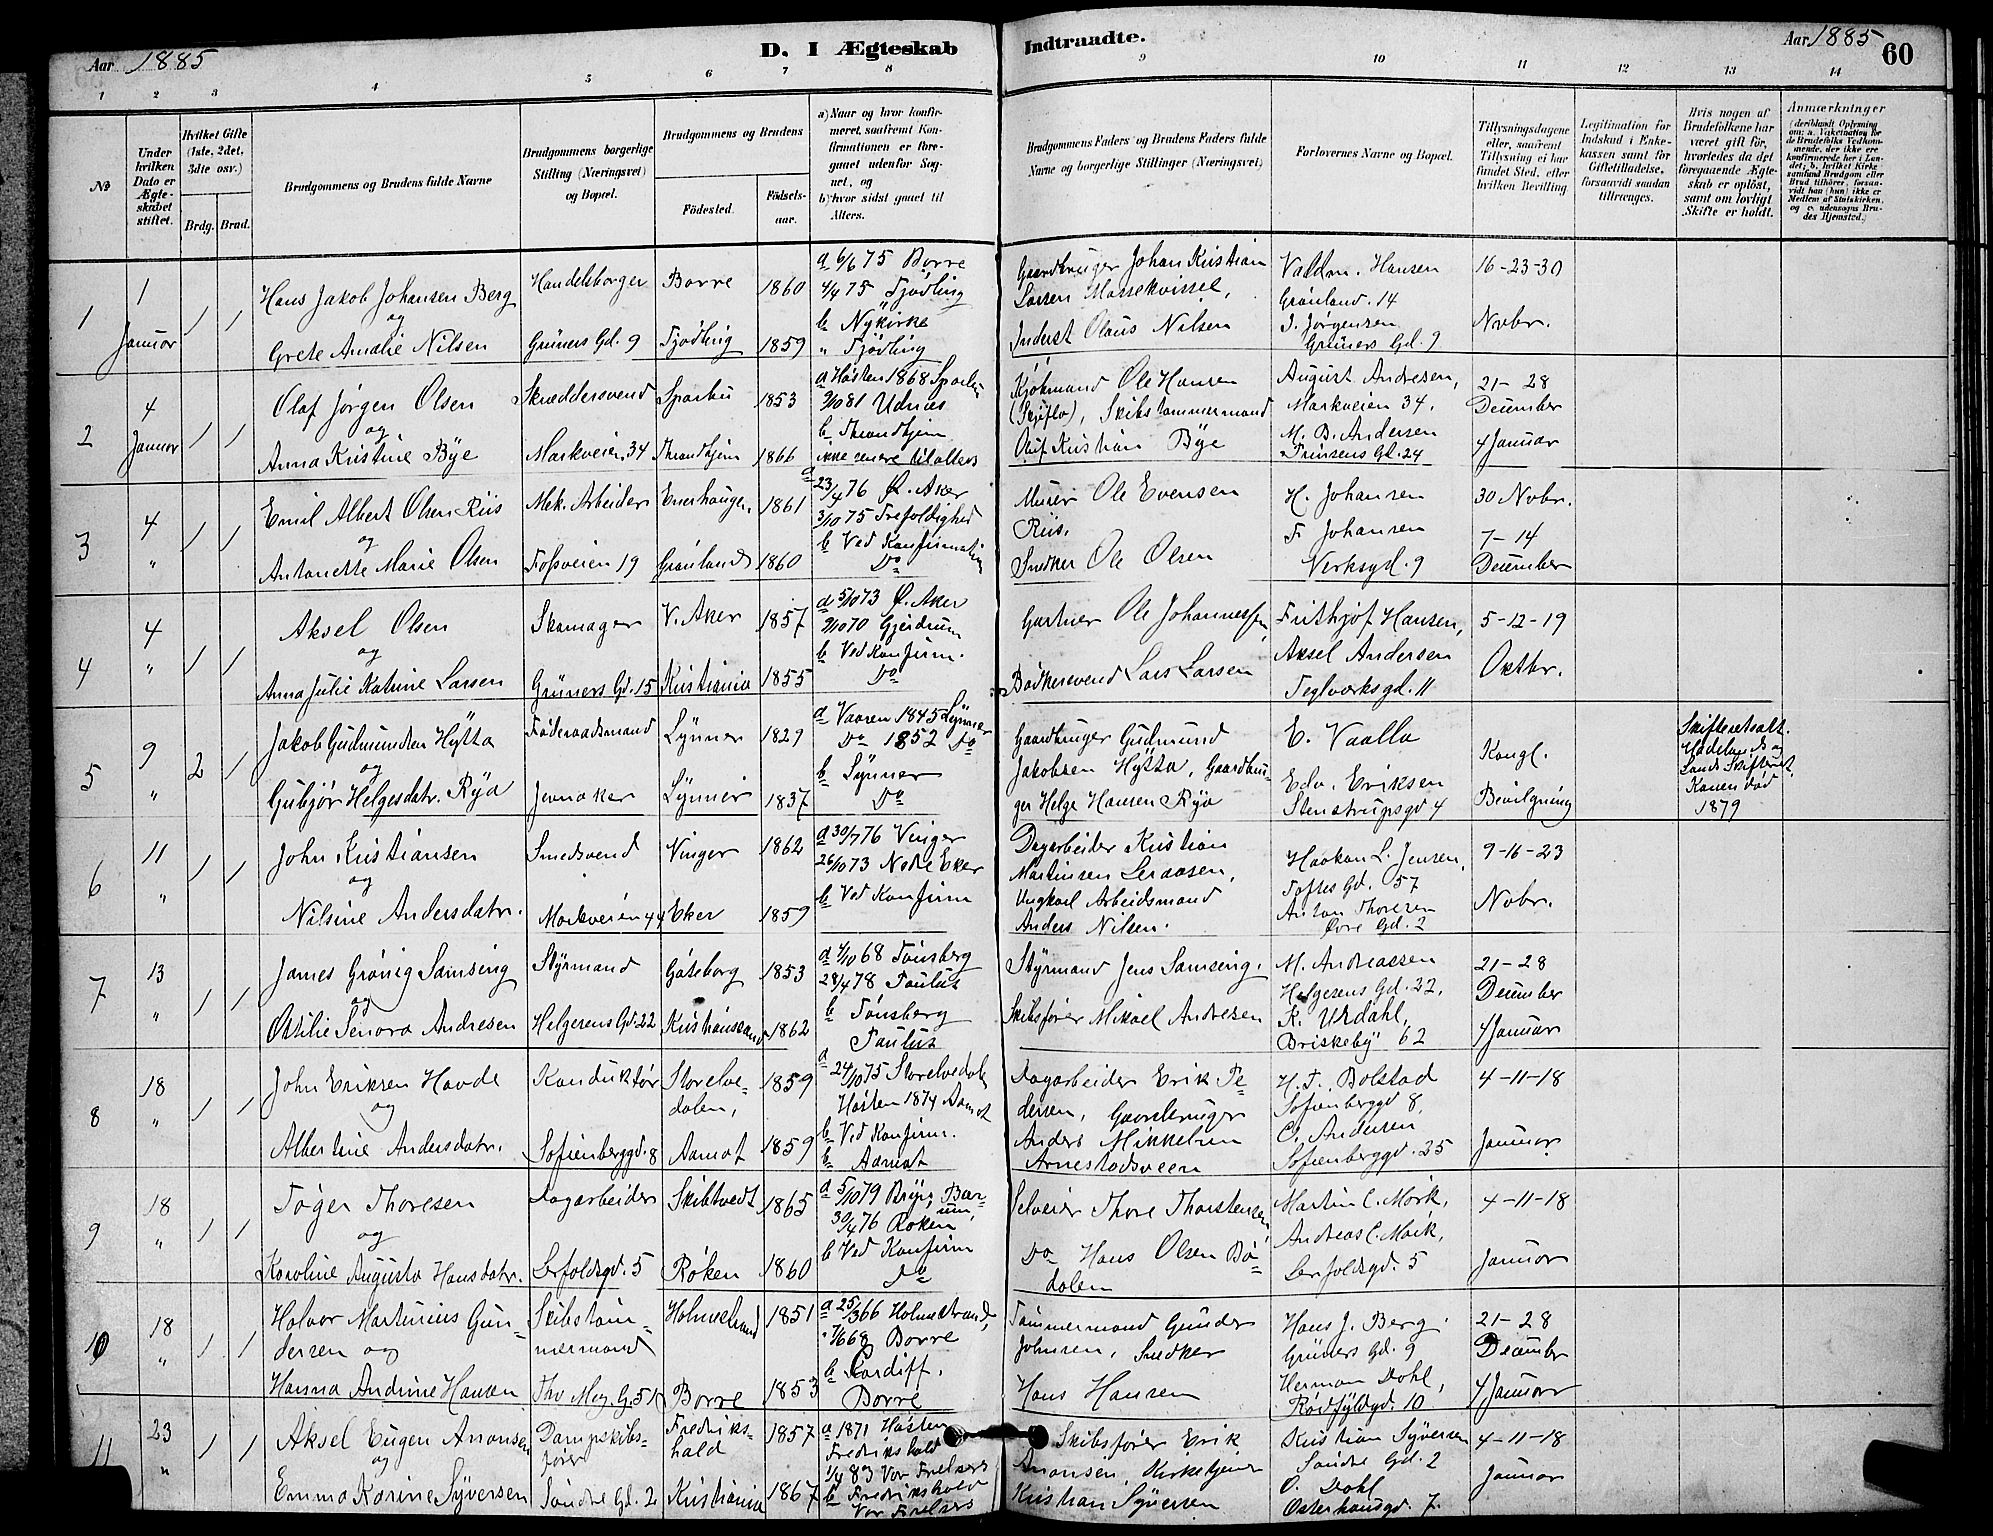 Aar 1885
D. I Ægteskab Indtraadte.
Aar 1885
60
1 2 3 4 5 6 7 8 9 10 11 12 13 14
No
Under hvilken Dato er Ægteskabet stiftet.
Hvilket Gifte (1ste, 2det, 3dte osv.)
Brdg. Brud.
Brudgommens og Brudens fulde Navne
Brudgommens borgerlige Stilling (Næringsvei) og Bopæl.
Brudgommens og Brudens
Fødested.
Fødselsaar.
a) Naar og hvor konfirmeret, saafremt Konfirmationen er foregaaet udenfor Sognet, og
b) hvor sidst gaaet til Alters.
Brudgommens Faders og Brudens Faders fulde Navne og borgerlige Stillinger (Næringsvei)
Forlovernes Navne og Bopæl.
Tillysningsdagene eller, saafremt Tillysning ei har fundet Sted, efter hvilken Bevilling
Legitimation for Indskud i Enkekassen samt for Giftetilladelse, forsaavidt saadan tiltrænges.
Hvis nogen af Brudefolkene har været gift før, hvorledes da det foregaaende Ægteskab er opløst, samt om lovligt Skifte er holdt.
Anmærkninger
1
1 Januar
1 1
Hans Jakob Johansen Berg
og
Grete Amalie Nilsen
Handelsborger
Grüners Gd. 9
Borre 1860
Tjødling 1859
a 6/6 75 Borre
4/4 75 Tjødling
b Nykirke
" Tjødling
Gaardbruger Johan Kristian
Larsen Massekvissel,
Inderst Olaus Nilsen
Valdm. Hansen
Grønland. 14
J. Jørgensen
Grüners Gd. 9
16-23-30
Novbr.
2
4 Januar
1 1
Olaf Jørgen Olsen
og
Anna Kristine Bÿe
Skræddersvend
Markveien 34
Sparbu 1853
Throndhjem 1866
a Høsten 1868 Sparbu
2/10 81 Udnæs
b Throndhjem
ikke senere til alters
Ole Hansen
Skibstømmermand
Oluf Kristian Bÿe
August Andresen,
Markveien 34.
M. B. Andersen
Prinsens Gd. 24
21-28
December
4 Januar
3
4 "
1 1
Emil Albert Olsen Riis
og
Antonette Marie Olsen
Mek. Arbeider
Fossveien 19
Enerhaugen 1861
Grønland 1860
a 23/4 76 Ø. Aker
3/10 75 Trefoldighed
b Ved Konfirmation
Do
Murer Ole Evensen
Riis.
Snedker Ole Olsen
H. Johansen
F. Johansen
Verksgd. 9
30 Novbr.
7-14
December
4
4 "
1 1
Aksel Olsen
og
Anna Julie Katrine Larsen
Skomager
Grüners Gd. 15
V. Aker 1857
Kristiania 1855
a 5/10 73 Ø. Aker
2/10 70 Gjerdrum
b Ved Konfirm.
Do
Gartner Ole Johannessen,
Bødkersvend Lars Larsen
Frithjof Hansen,
Aksel Andersen
Teglverksgd. 11
5-12-19
Oktbr.
5
9 "
2 1
Jakob Gudmundsen Hÿtta
og
Gubjør Helgesdatr. Rÿa
Føderaadsmand
Jevnaker
Lÿnner 1829
Lÿnner 1837
a Vaaren 1845 Lÿnner
Do 1852 Do
b Lÿnner
Do
Gaardbruger Gudmund
Jakobsen Hÿtta, Gaardbru-
ger Helge Hansen Rÿa
E. Vaalla
Edv. Eriksen
Stenstrupsgd 4
Kongl.
Bevilgning
Skifteretsatt.
Hadelands og
Lands Skifteret.
Konen død
1879
6
11 "
1 1
John Kristiansen
og
Nilsine Andersdatr.
Smedsvend
Markveien 44
Vinger 1862
Eker 1859
a 30/7 76 Vinger
26/10 73 Nedre Eker
b Ved Konfirm
Dagarbeider Kristian
Martinsen Leraasen,
Ungkarl Arbeidsmand
Anders Nilsen.
Haakon L. Jensen,
Toftes Gd. 57
Anton Thoresen
Øvre Gd. 2
9-16-23
Novbr.
7
13 "
1 1
James Grönig Samsing
og
Ottilie Senora Andresen
Stÿrmand
Helgesens Gd. 22
Gøteborg 1853
Kristianssand 1862
a 4/10 68 Tønsberg
28/4 78 Paulus
b Tønsberg
Paulus
Stÿrmand Jens Samsing.
Skibsfører Mikael Andresen
M. Andreassen
Helgesens Gd. 22,
K. Urdahl,
Briskebÿ 62
21-28
December
4 Januar
8
18 "
1 1
John Eriksen Havde
og
Albertine Andersdatr.
Konduktør
Sofienberggd. 8
Storelve-
dalen, 1859
Aamot 1859
a 24/10 75 Storelvedalen
Høsten 1874 Aamot
b Ved Konfirm.
b Aamot
Dagarbeider Erik Pe-
dersen, Gaardbruger
Anders Mikkelsen
Arnestadsveen
H. F. Bolstad
Sofienberggd 8,
O. Andersen
Sofienberggd. 25
4-11-18
Januar
9
18 "
1 1
Tøger Thoresen
og
Karoline Augusta Hansdatr.
Dagarbeider
Lerfoldsgd. 5
Skibtvedt 1865
Røken 1860
a 5/10 79 Brÿn, Bær-
um,
30/4 76 Røken
b Ved Konfirm
Do
Selveier Thore Thorstensen
Do Hans Olsen Bø-
dalen
Martin C. Mørk,
Andreas C. Mørk,
Lerfoldsgd. 5
4-11-18
Januar
10
18 "
1 1
Halvor Martinius Gun-
dersen og
Hanna Andrine Hansen
Skibstøm-
mermand
Thv Meÿ. Gd. 51
Holmestrand 1851
Borre 1853
a 25/3 66 Holmestrand,
" 7/6 68 Borre
b Cardiff,
Borre
Tømmermand Gunder
Johnsen, Snedker
Hans Hansen
Hans J. Berg.
Grüners Gd. 9
Herman Dahl,
Rødfÿldgd. 10
21-28
December
4 Januar
11
23 "
1 1
Aksel Eugen Anonsen
og
Emma Karine Sÿversen
Dampskibs-
fører
Søndre Gd. 2
Fredriks-
hald 1857
Kristiania 1867
a 1871 Høsten
Fredrikshald
1/4 83 Vor Frelsers
b Fredrikshald
Vor Frelsers
Skibsfører Erik
Anonsen, Kirketjener
Kristian Sÿversen
Kristian Sÿversen
Søndre Gd. 2
O. Dahl
Osterhausgd. 7.
4-11-18
Januar